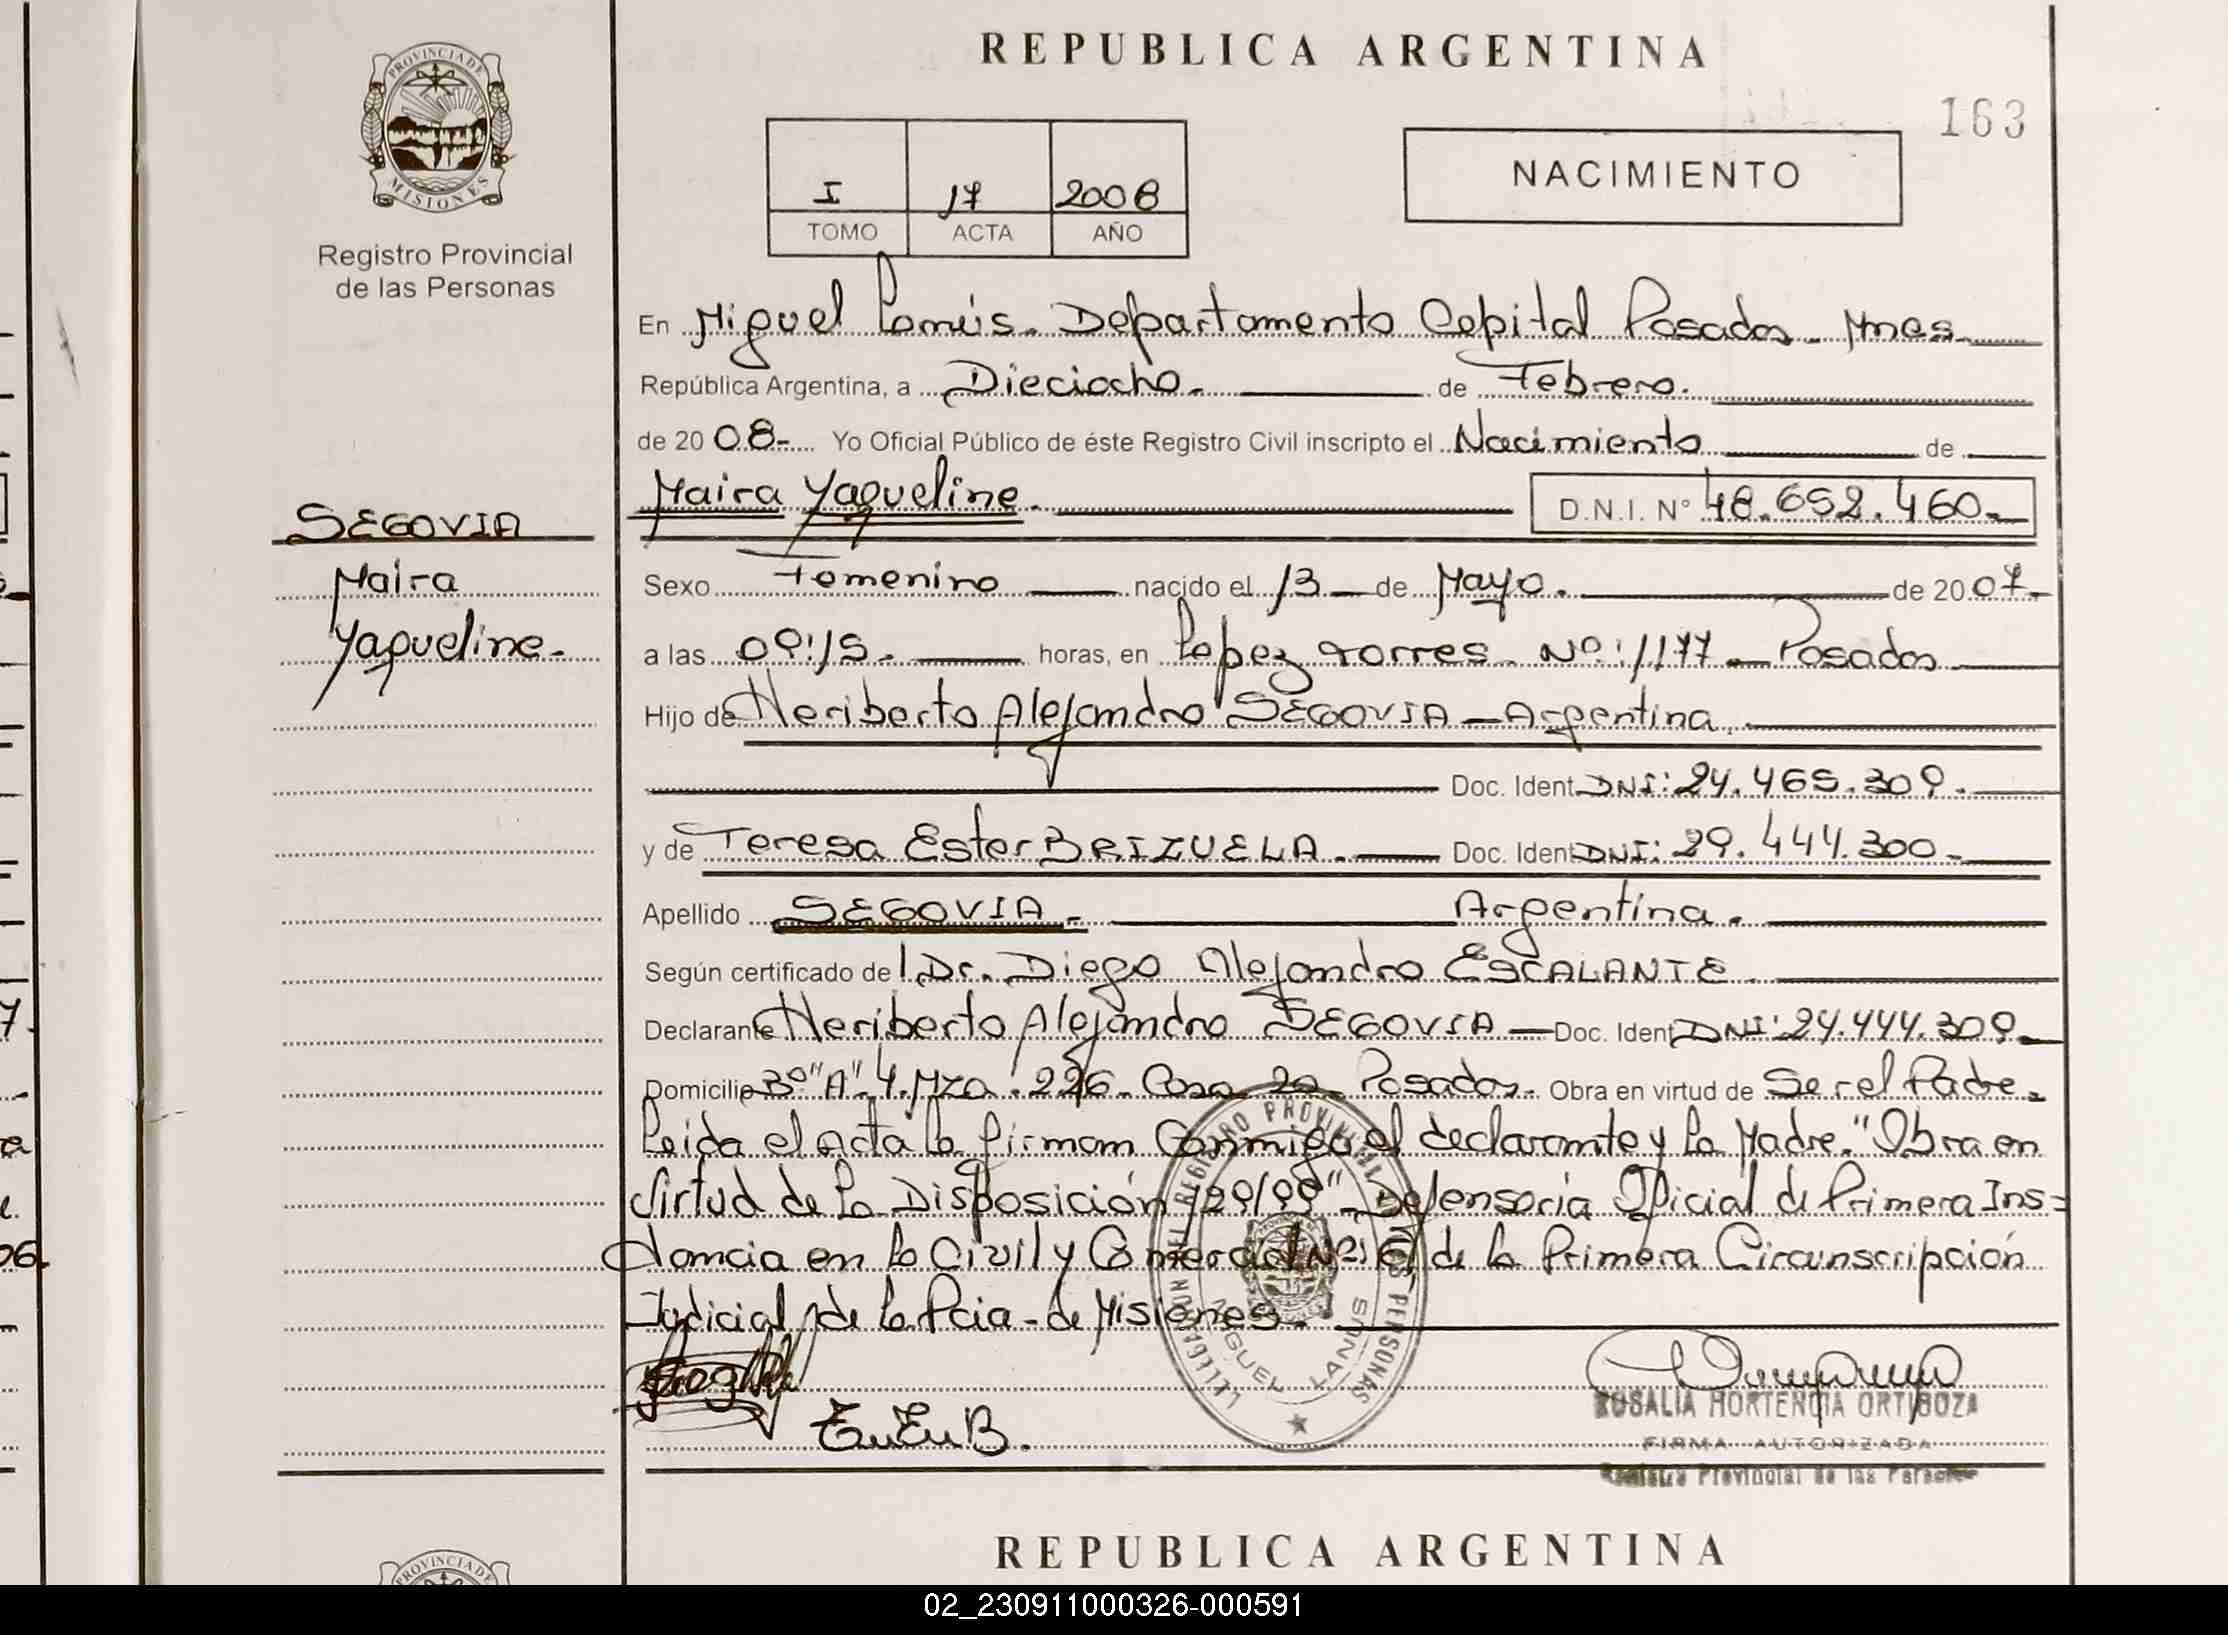 REPUBLICA ARGENTINA
163
PROVINCIA DE
MISIONES
Registro Provincial
de las Personas
I 17 2008
TOMO ACTA AÑO
NACIMIENTO
En Miguel Lanús. Departamento Capital Posadas. Mnes.
República Argentina, a Dieciocho. de Febrero.
de 2008- Yo Oficial Público de éste Registro Civil inscripto el Nacimiento de
Maira Yaqueline. D.N.I. Nº 48.652.460-
SEGOVIA
Maira
Yaqueline-
Sexo Femenino nacido el 13 de Mayo. de 2007-
a las 09:15. horas, en Lopez Torres. Nº:1177 Posadas
Hijo de Heriberto Alejandro SEGOVIA - Argentina.
Doc. Ident. DNI: 24.465.309-
y de Teresa Ester BRIZUELA. Doc. Ident. DNI: 29.444.300-
Apellido SEGOVIA.- Argentina.
Según certificado de Dr. Diego Alejandro ESCALANTE
Declarante Heriberto Alejandro SEGOVIA Doc. Ident. DNI: 24.444.309-
Domicilio Bº "A" 4. Mza. 226. Casa 20 Posadas. Obra en virtud de Ser el Padre.
Leida el Acta la firman Conmigo el declarante y la Madre. "Obra en
Virtud de la Disposición 29/99" Defensoria Oficial de Primera Ins=
tancia en lo Civil y Comercial Nº de la Primera Circunscripción
Judicial de la Pcia- de Misiones.
REGISTRO PROVINCIAL DE LAS PERSONAS
MIGUEL LANUS
ROSALIA HORTENCIA ORTIGOZA
FIRMA AUTORIZADA
Registro Provincial de las Personas
REPUBLICA ARGENTINA
PROVINCIA DE
02_230911000326-000591